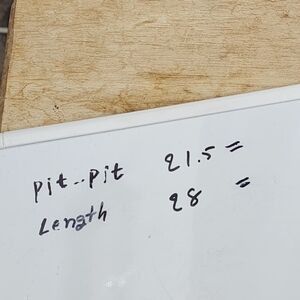 Pit--Pit 21.5 =
Length 28 =